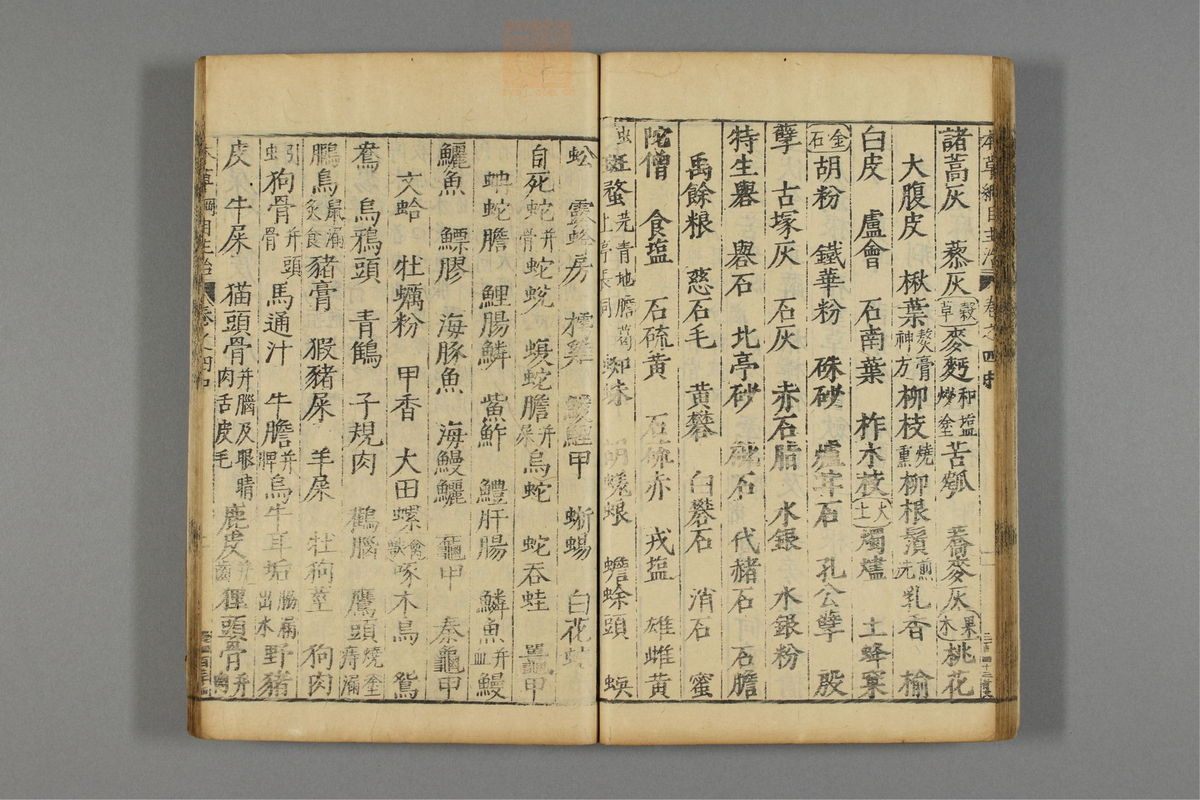 本草綱目主治 卷之四
諸蒿灰 藜灰 穀草 麥麪 和塩炒塗 苦瓠 蕎麥灰 果木 桃花
大腹皮 楸葉 熬膏神方 柳枝 燒熏 柳根鬚 煎洗 乳香 榆
白皮 盧會 石南葉 柞木枝 火土 燭燼 土蜂窠
金石 胡粉 鐵華粉 硃砂 爐甘石 孔公孽 殷
孽 古塚灰 石灰 赤石脂 水銀 水銀粉
特生礜 礜石 北亭砂 砒石 代赭石 石膽
禹餘粮 慈石毛 黃礬 白礬石 消石 蜜
陀僧 食塩 石硫黃 石硫赤 戎塩 雄雌黃
虫 斑蝥 芫青地膽葛上亭長同 蜘蛛 蟾蜍頭 蜈
蚣 露蜂房 樗雞 鯪鯉甲 蜥蜴 白花蛇
自死蛇 并骨 蛇蛻 蝮蛇膽 并屎 烏蛇 蛇吞蛙 鼉甲
蚺蛇膽 鯉腸鱗 鮆鮓 鱧肝腸 鱗魚 并血 鰻
鱺魚 鰾膠 海豚魚 海鰻鱺 龜甲 秦龜甲
文蛤 牡蠣粉 甲香 大田螺 禽獸 啄木鳥 鴛
鴦 烏鴉頭 青鶴 子規肉 鸛腦 鷹頭 燒塗痔瘻
鵬鳥 鼠瘻炙食 豬膏 豭豬屎 羊屎 牡狗莖 狗肉
狗骨 并頭骨 馬通汁 牛膽 并脾 烏牛耳垢 腸瘻出水 野豬
皮 牛屎 猫頭骨 并腦及眼睛肉舌皮毛 鹿皮 并齒 狸頭骨
本草綱目主治 卷之四